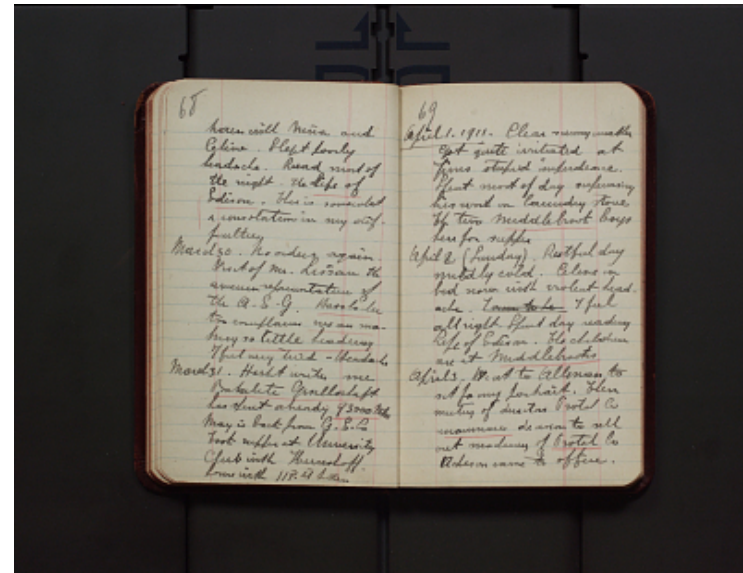 68
home with Nina and
Celine. Slept poorly
headache. Read most of
the night. the Life of
Edison. This is somewhat
a consolation in my dif-
ficulties
March 30. No orders again.
Visit of Mr. the
american representative of
the A.S.G. Hasslacher
too complains we are ma-
king so little headway
I feel very tired - Headache
March 31. Hecht writes me
Bakelite Gesellschaft
has spent already 93000 Mks
May is back from G.E.Co
Took supper at University
Club with Herreshoff.
home with 11 P.M.
69
April 1. 1911. Clear sunny weather
Got quite irritated at
Tom's stupid imprudence.
Spent most of day supervising
his work on laundry stove
by two Middlebrook boys
here for supper
April 2 (Sunday). Restful day
mildly cold. Celine in
bed now with violent head-
ache. I feel
allright Spent day reading
Life of Edison. The children
are at Middlebrooks
April 3. Went to Alleman to
sit for my portrait. Then
meeting of directors Protal Co
decision to sell
out machinery of Protal Co
Acheson came to office.